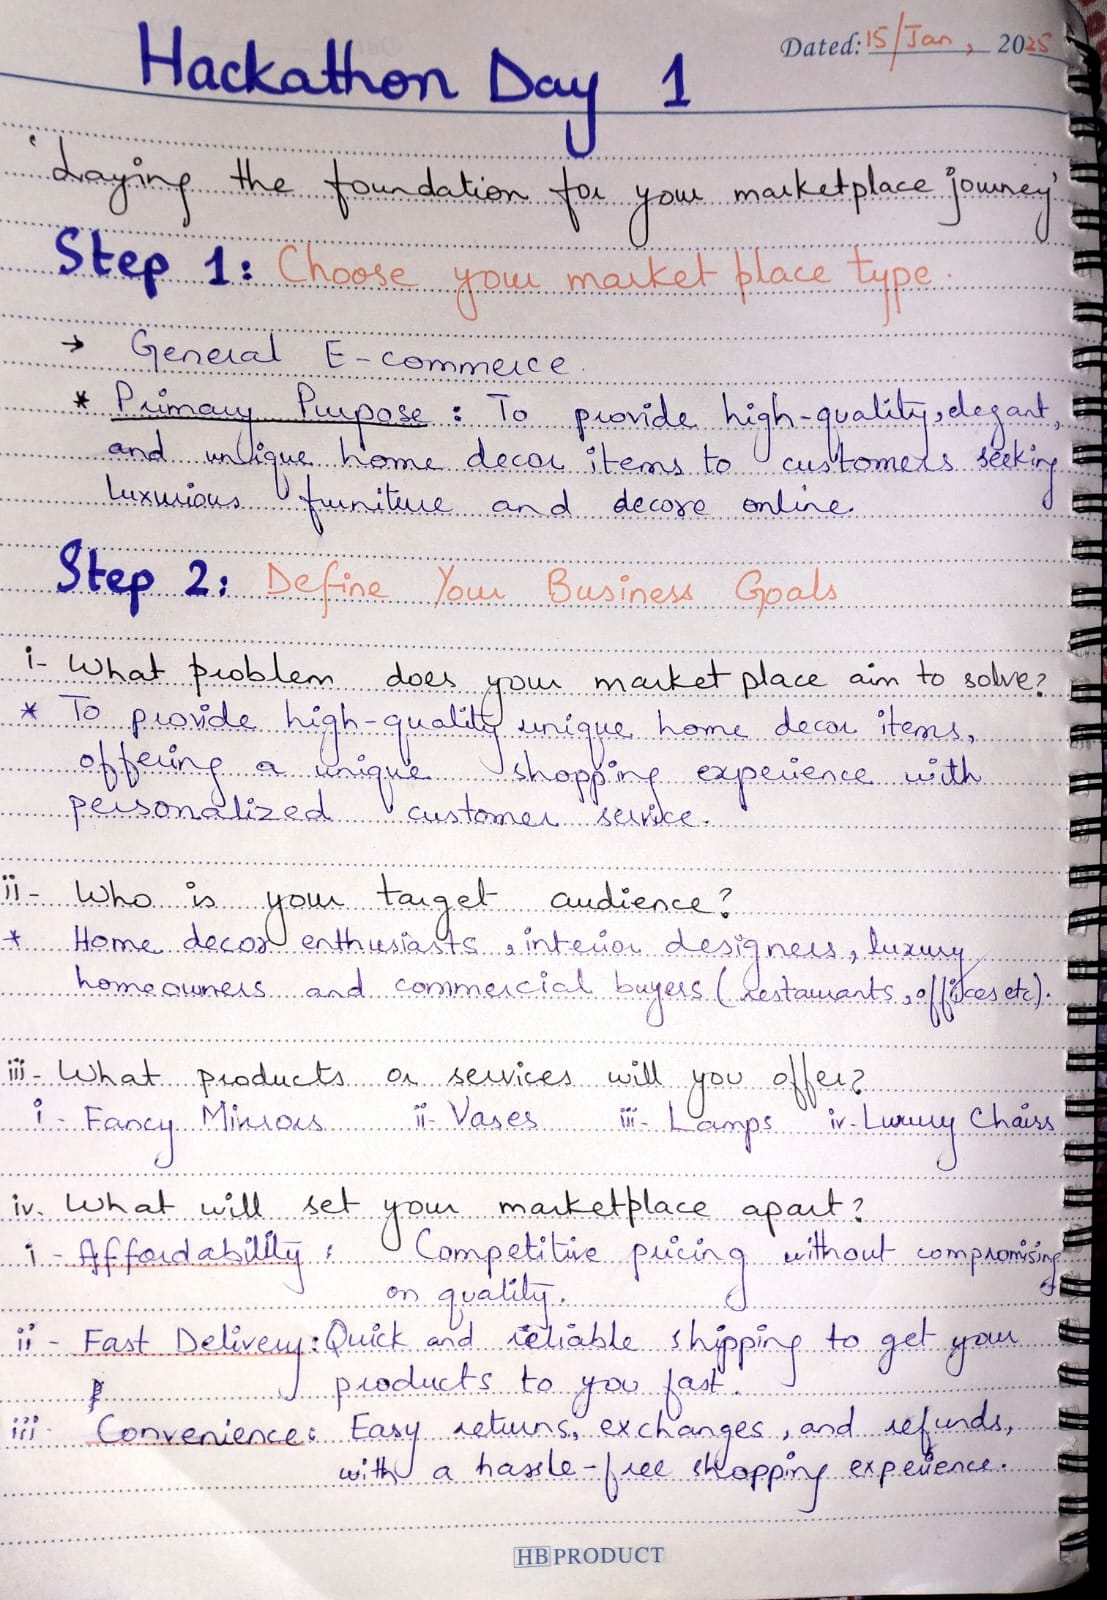 Dated: 15/Jan, 2025
Hackathon Day 1
'Laying the foundation for your marketplace journey'
Step 1: Choose your market place type.
→ General E-commerce.
* Primary Purpose : To provide high-quality, elegant,
and unique home decor items to customers seeking
luxurious furniture and decore online.
Step 2: Define Your Business Goals
i- What problem does your market place aim to solve?
* To provide high-quality unique home decor items,
offering a unique shopping experience with
personalized customer service.
ii- Who is your target audience?
* Home decor enthusiasts, interior designers, luxury
homeowners and commercial buyers (restaurants, offices etc).
iii- What products or services will you offer?
i- Fancy Mirrors ii- Vases iii- Lamps iv- Luxury Chairs
iv. What will set your marketplace apart?
i- Affordability : Competitive pricing without compromising
on quality.
ii- Fast Delivery: Quick and reliable shipping to get your
products to you fast.
iii- Convenience: Easy returns, exchanges, and refunds,
with a hassle-free shopping experience.
HB PRODUCT